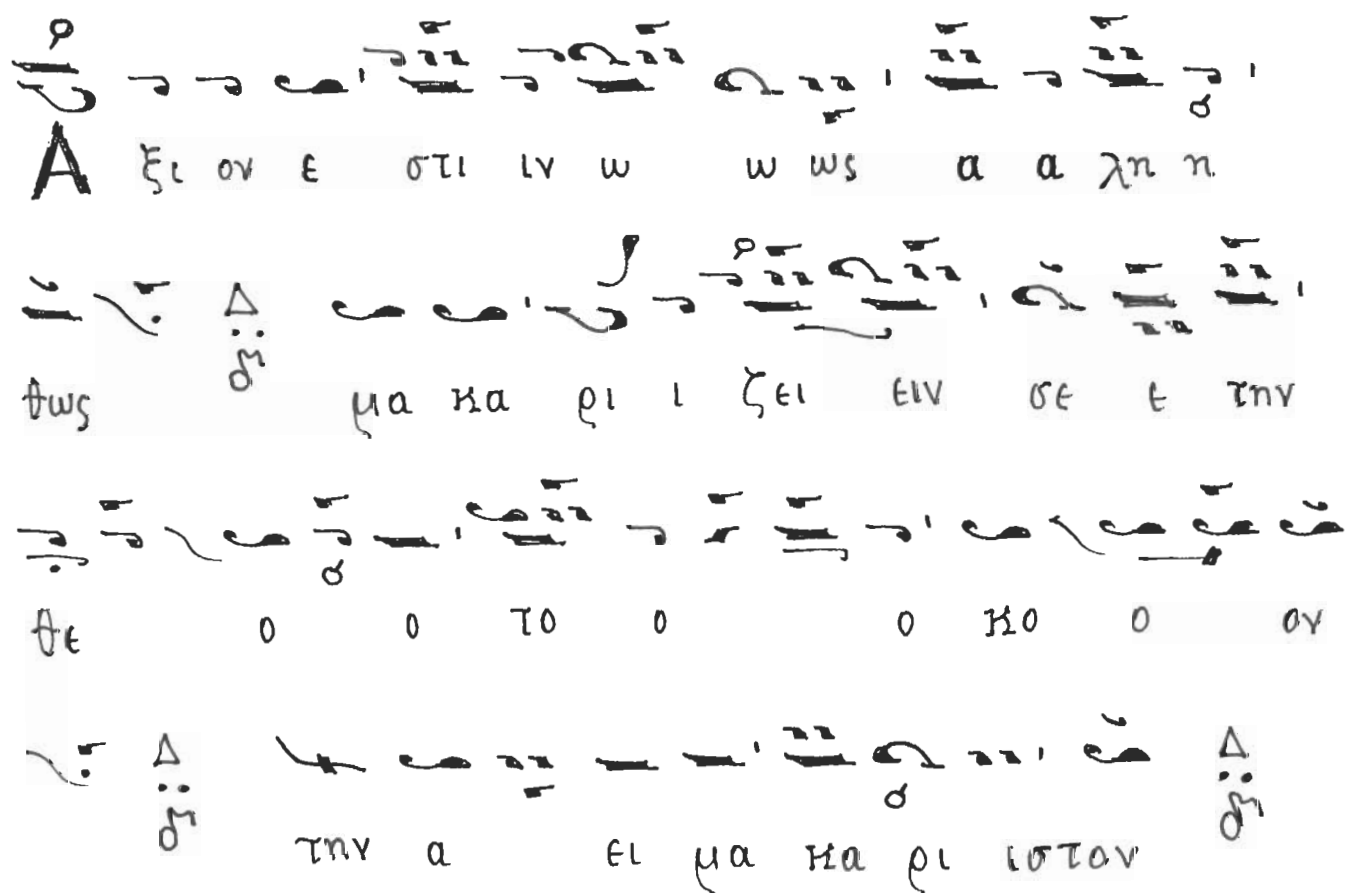 Α ξι ον ε στι ιν ω ω ως α α λη η
θως Δ μα κα ρι ι ζει ειν σε ε την
θε ο ο το ο ο κο ο ον
Δ την α ει μα κα ρι ιστον Δ